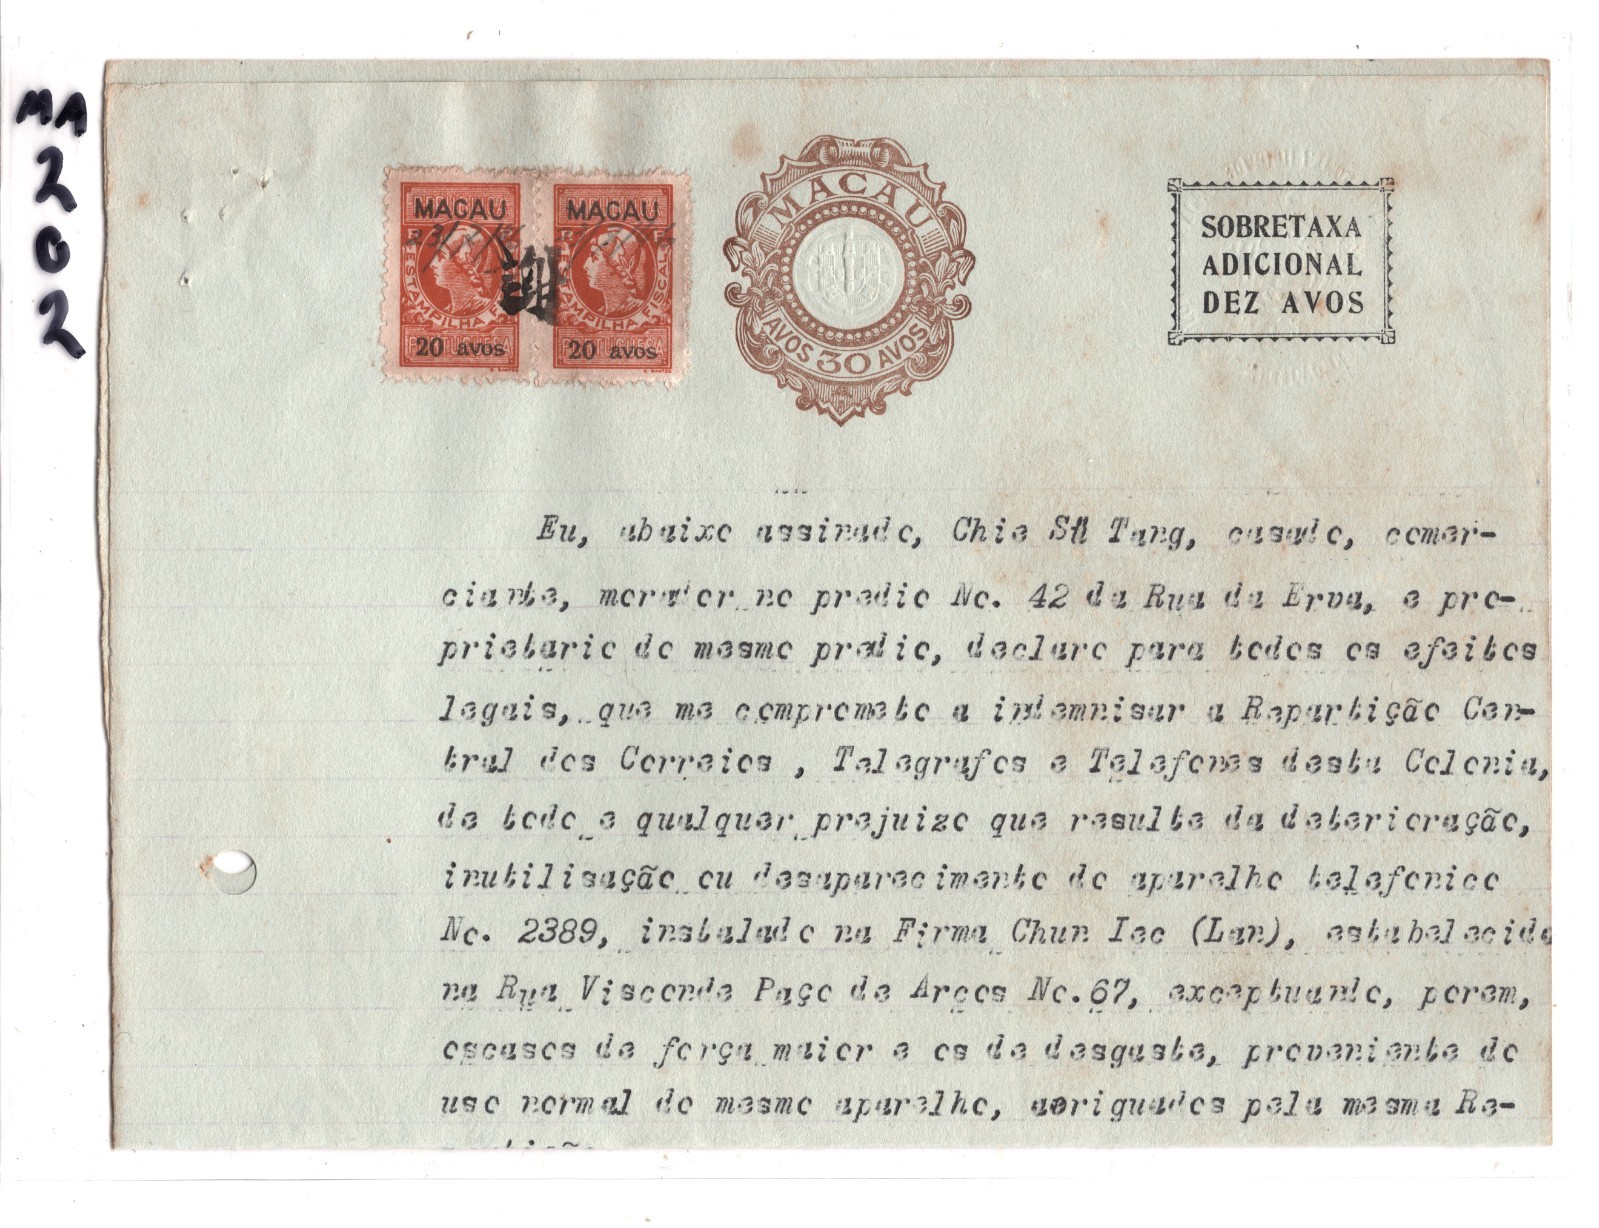 MA
2
0
2
MACAU
MACAU
ESTAMPILHA FISCAL
ESTAMPILHA FISCAL
20 avos
20 avos
MACAU
AVOS 30 AVOS
SOBRETAXA
ADICIONAL
DEZ AVOS
Eu, abaixo assinado, Chie Sü Tang, casado, comer-
ciante, morador no predio No. 42 da Rua da Erva, e pro-
prietario do mesmo predio, declaro para todos os efeitos
legais, que me comprometo a indemnisar a Repartição Cen-
tral dos Correios , Telegrafos e Telefones desta Colonia,
de todo e qualquer prejuizo que resulte da deterioração,
inutilisação ou desaparecimento do aparelho telefonico
No. 2389, instalado na Firma Chun Iec (Lan), estabelecida
na Rua Visconde Paço de Arcos No.67, exceptuando, porem,
oscasos de força maior e os de desgaste, proveniente do
uso normal do mesmo aparelho, aoriguados pela mesma Re-